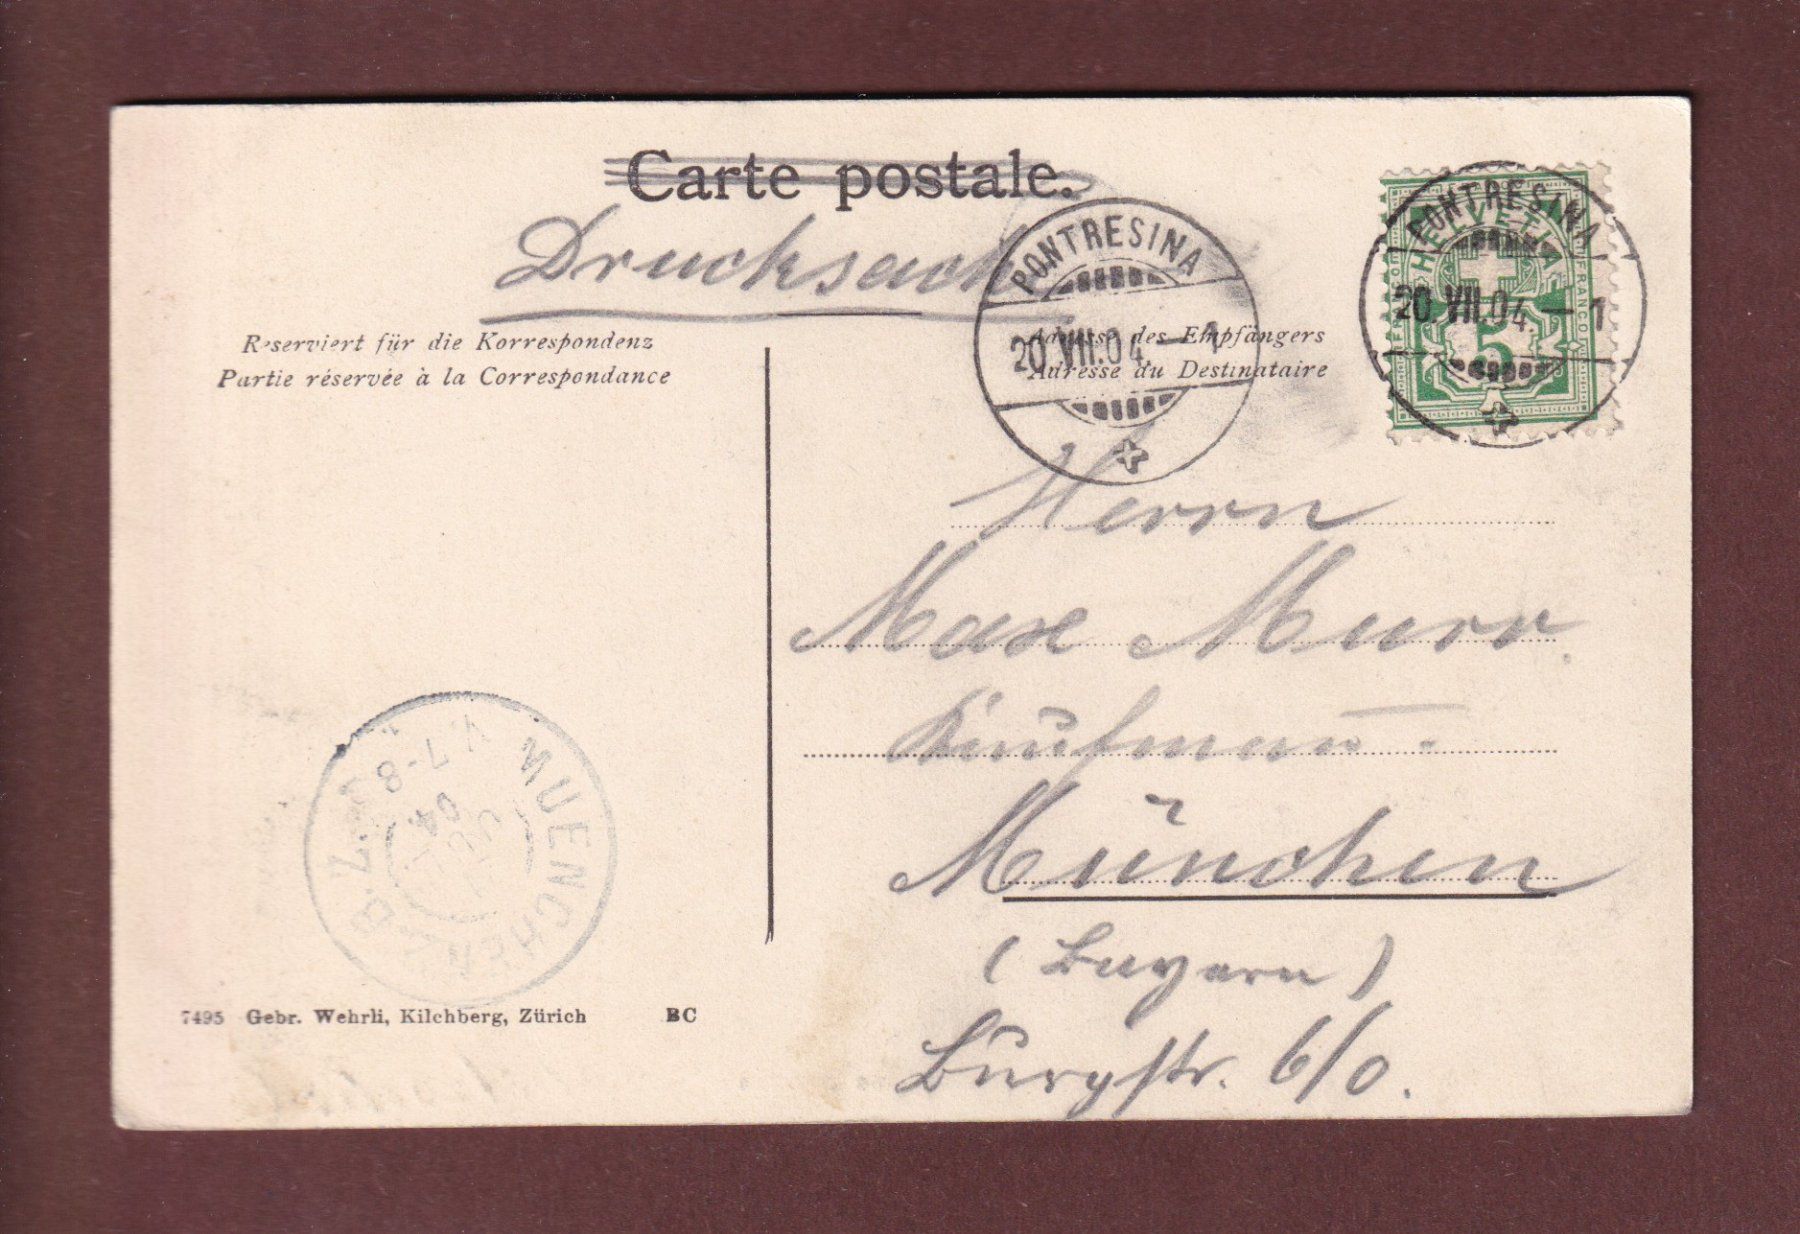 Carte postale.
Drucksache
Reserviert für die Korrespondenz
Partie réservée à la Correspondance
Adresse des Empfängers
Adresse du Destinataire
PONTRESINA
20.VII.04.—1
PONTRESINA
20.VII.04.—1
HELVETIA
FRANCO
5
Herrn
Max Murr.
Kaufmann.
München
(Bayern)
Burgstr. 6/0.
MUENCHEN
7-8
04
7495 Gebr. Wehrli, Kilchberg, Zürich BC